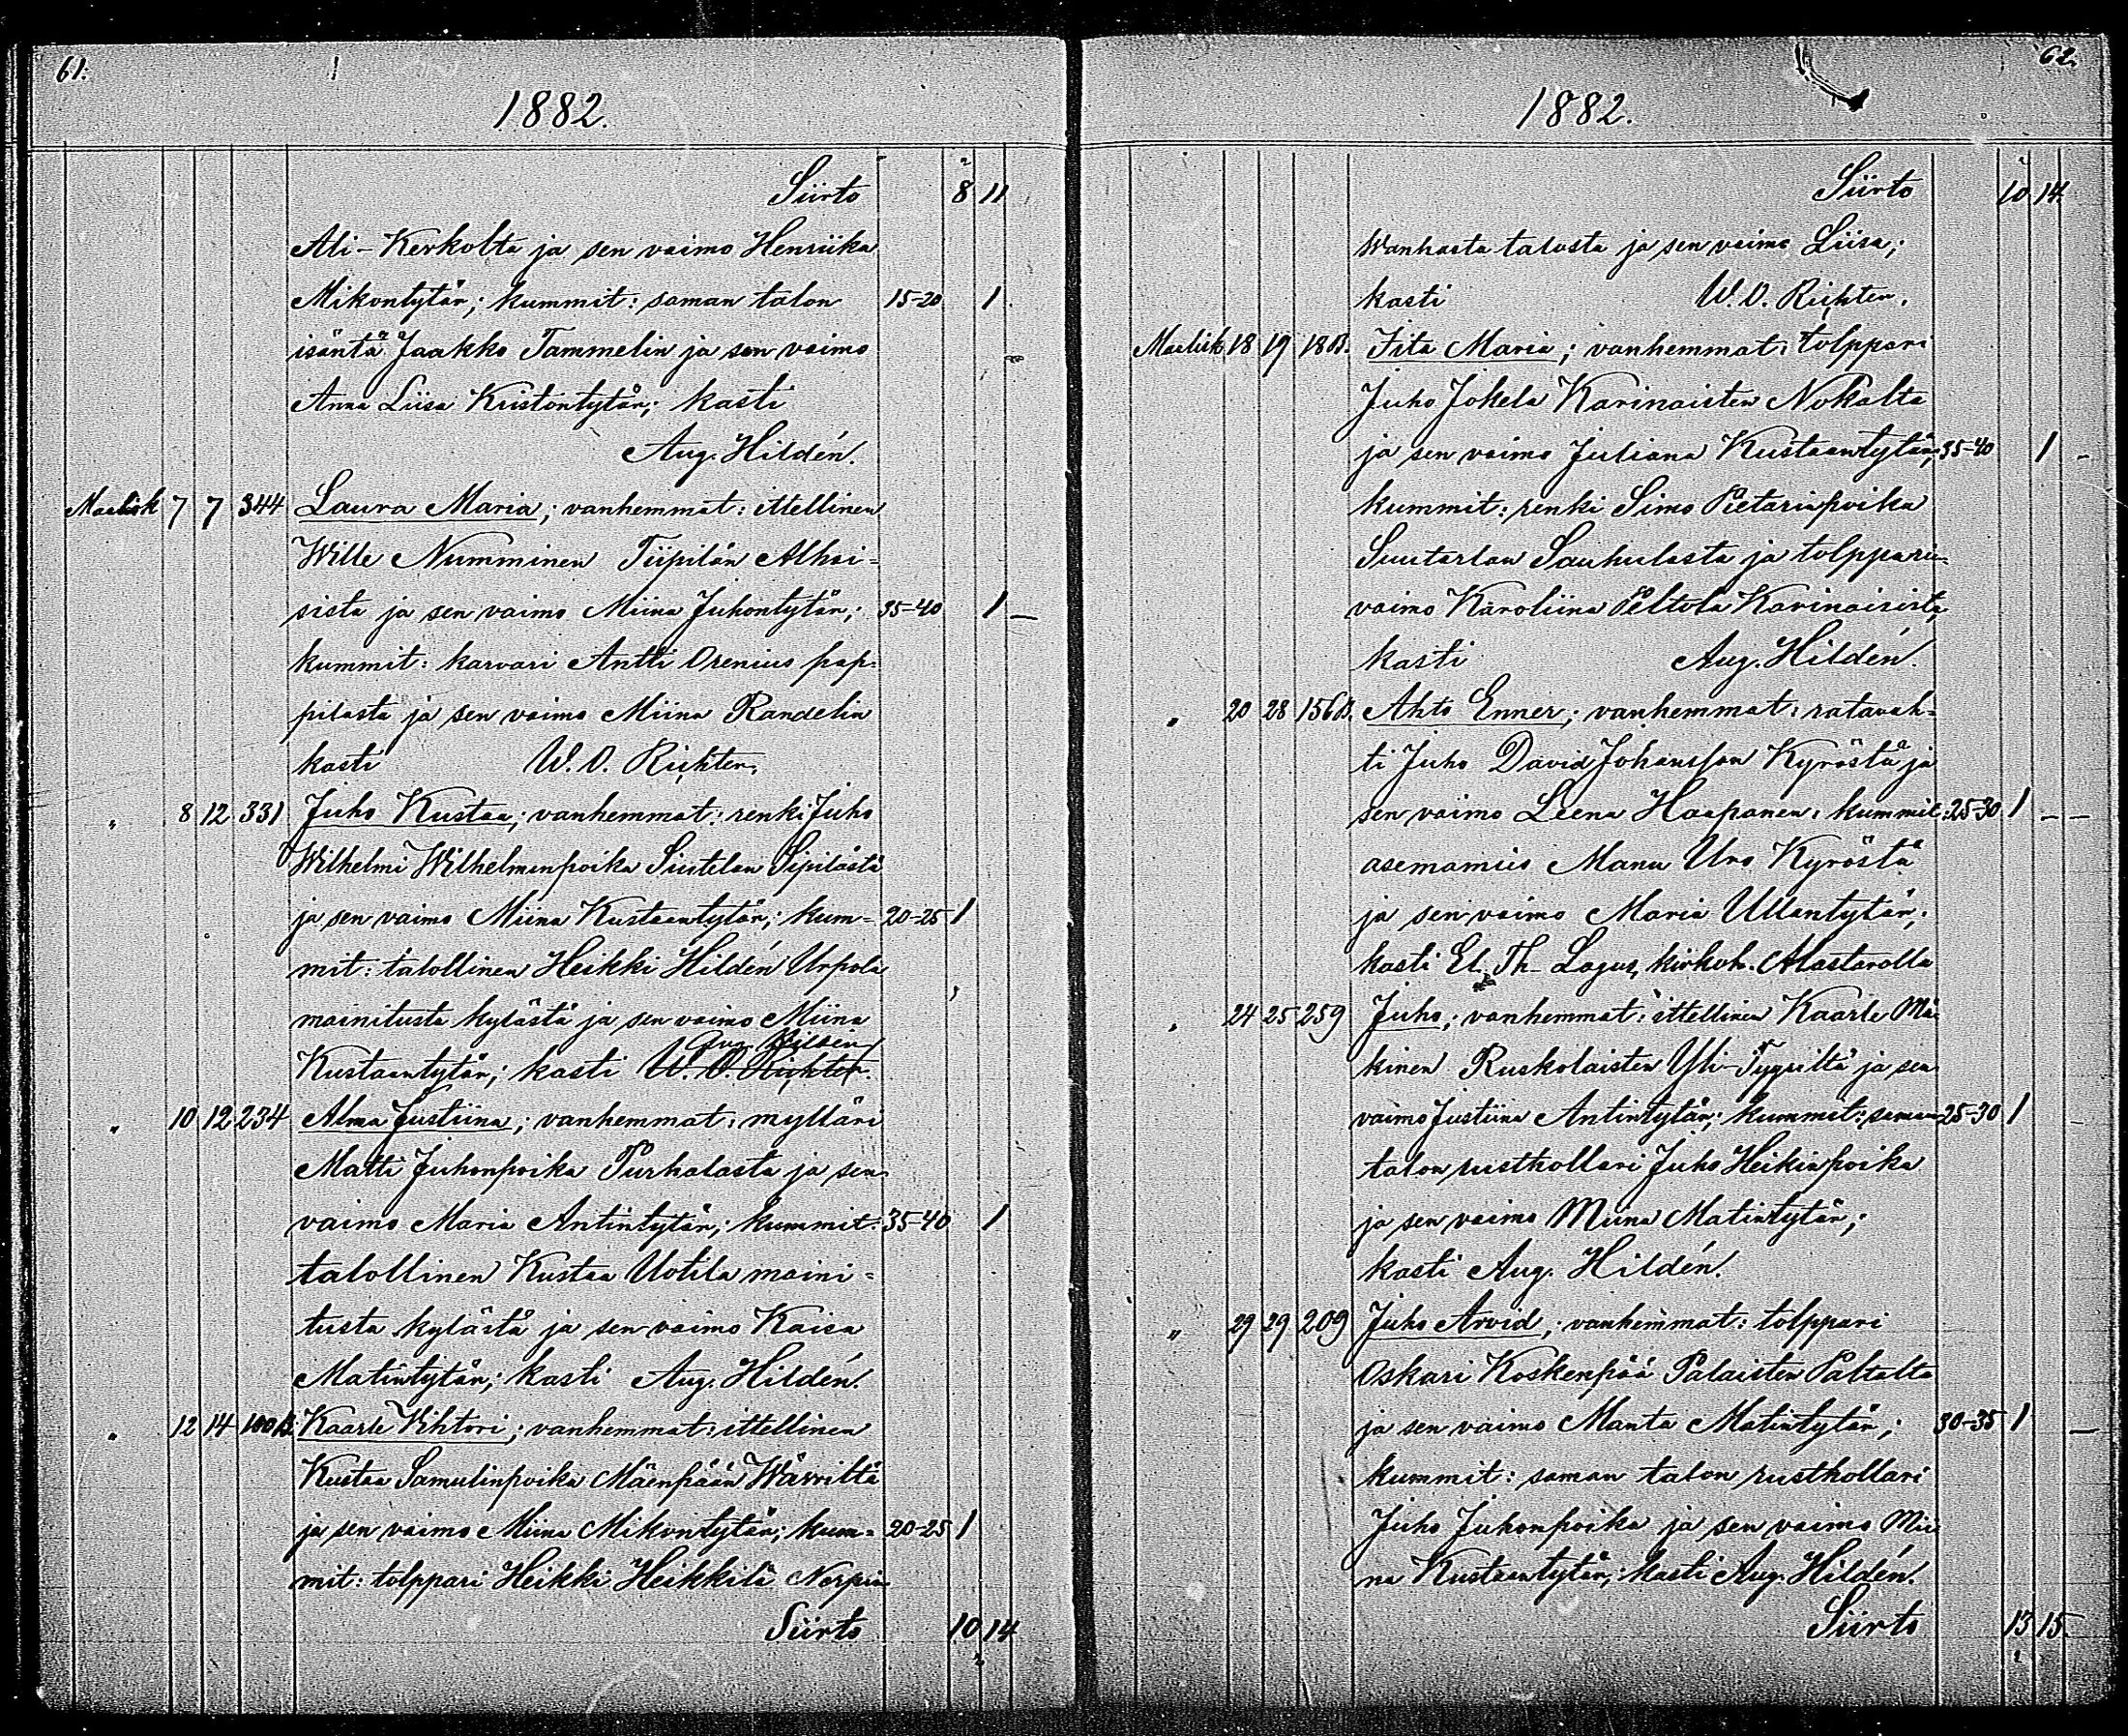 61.
1882.
Siirto 8 11
Ali-Kerkolta ja sen vaimo Henriika
Mikontytär; kummit: saman talon 15-20 1
isäntä Jaakko Tammelin ja sen vaimo
Anna Liisa Kristontytär; kasti
Aug. Hildén.
Maalisk 7 7 344 Laura Maria; vanhemmat: ittellinen
Wille Numminen Tiipilän Alhai-
sista ja sen vaimo Miina Juhontytär; 35-40 1 —
kummit: karvari Antti Orenius pap-
pilasta ja sen vaimo Miina Randelin
kasti W. O. Richter.
" 8 12 331 Juho Kustaa; vanhemmat: renki Juho
Wilhelmi Wilhelminpoika Sipilästä
ja sen vaimo Miina Kustaantytär; kum- 20-25 1
mit: talollinen Heikki Hildén Urpola
mainitusta kylästä ja sen vaimo Miina
Aug. Hildén
Kustaantytär; kasti W. O. Richter.
" 10 12 234 Alma Justiina; vanhemmat: mylläri
Matti Juhonpoika Turhalasta ja sen
vaimo Maria Antintytär; kummit: 35-40 1
talollinen Kustaa Uotila maini-
tusta kylästä ja sen vaimo Kaisa
Matintytär; kasti Aug. Hildén.
" 12 14 100 B. Kaarle Vihtori; vanhemmat: ittellinen
Kustaa Samulinpoika Mäenpään Wärriltä
ja sen vaimo Miina Mikontytär; kum- 20-25 1
mit: tolppari Heikki Heikkilä Narpin
Siirto 10 14
62.
1882.
Siirto 10 14.
Wanhasta talosta ja sen vaimo Liisa;
kasti W. O. Richter.
Maalisk. 18 19 18 B. Fita Maria; vanhemmat: tolppari
Juho Jokela Karinaisten Nokalta
ja sen vaimo Juliana Kustaantytär; 35-40 1 -
kummit: renki Simo Pietarinpoika
Suutarlan Sauhulasta ja tolpparin
vaimo Karoliina Peltola Karinaisista,
kasti Aug. Hildén.
" 20 28 156 B. Ahto Enner; vanhemmat: ratavah-
ti Juho David Johansson Kyröstä ja
sen vaimo Leena Haapanen; kummit: 25-30 1 - -
asemamies Manu Uro Kyröstä
ja sen vaimo Maria Ullantytär;
kasti El. Th. Lagus, kirkoh. Alastarolla
" 24 25 259 Juho; vanhemmat: ittellinen Kaarle Mä-
kinen Ruskolaisten Yli-Tyyriltä ja sen
vaimo Justiina Antintytär; kummit: saman 25-30 1
talon rusthollari Juho Heikinpoika
ja sen vaimo Miina Matintytär;
kasti Aug. Hildén.
" 29 29 209 Juho Arvid; vanhemmat: tolppari
Oskari Koskenpää Palaisten Paltalta
ja sen vaimo Manta Matintytär; 30-35 1 —
kummit: saman talon rusthollari
Juho Juhonpoika ja sen vaimo Mii-
na Kustaantytär; kasti Aug. Hildén.
Siirto 13 15.